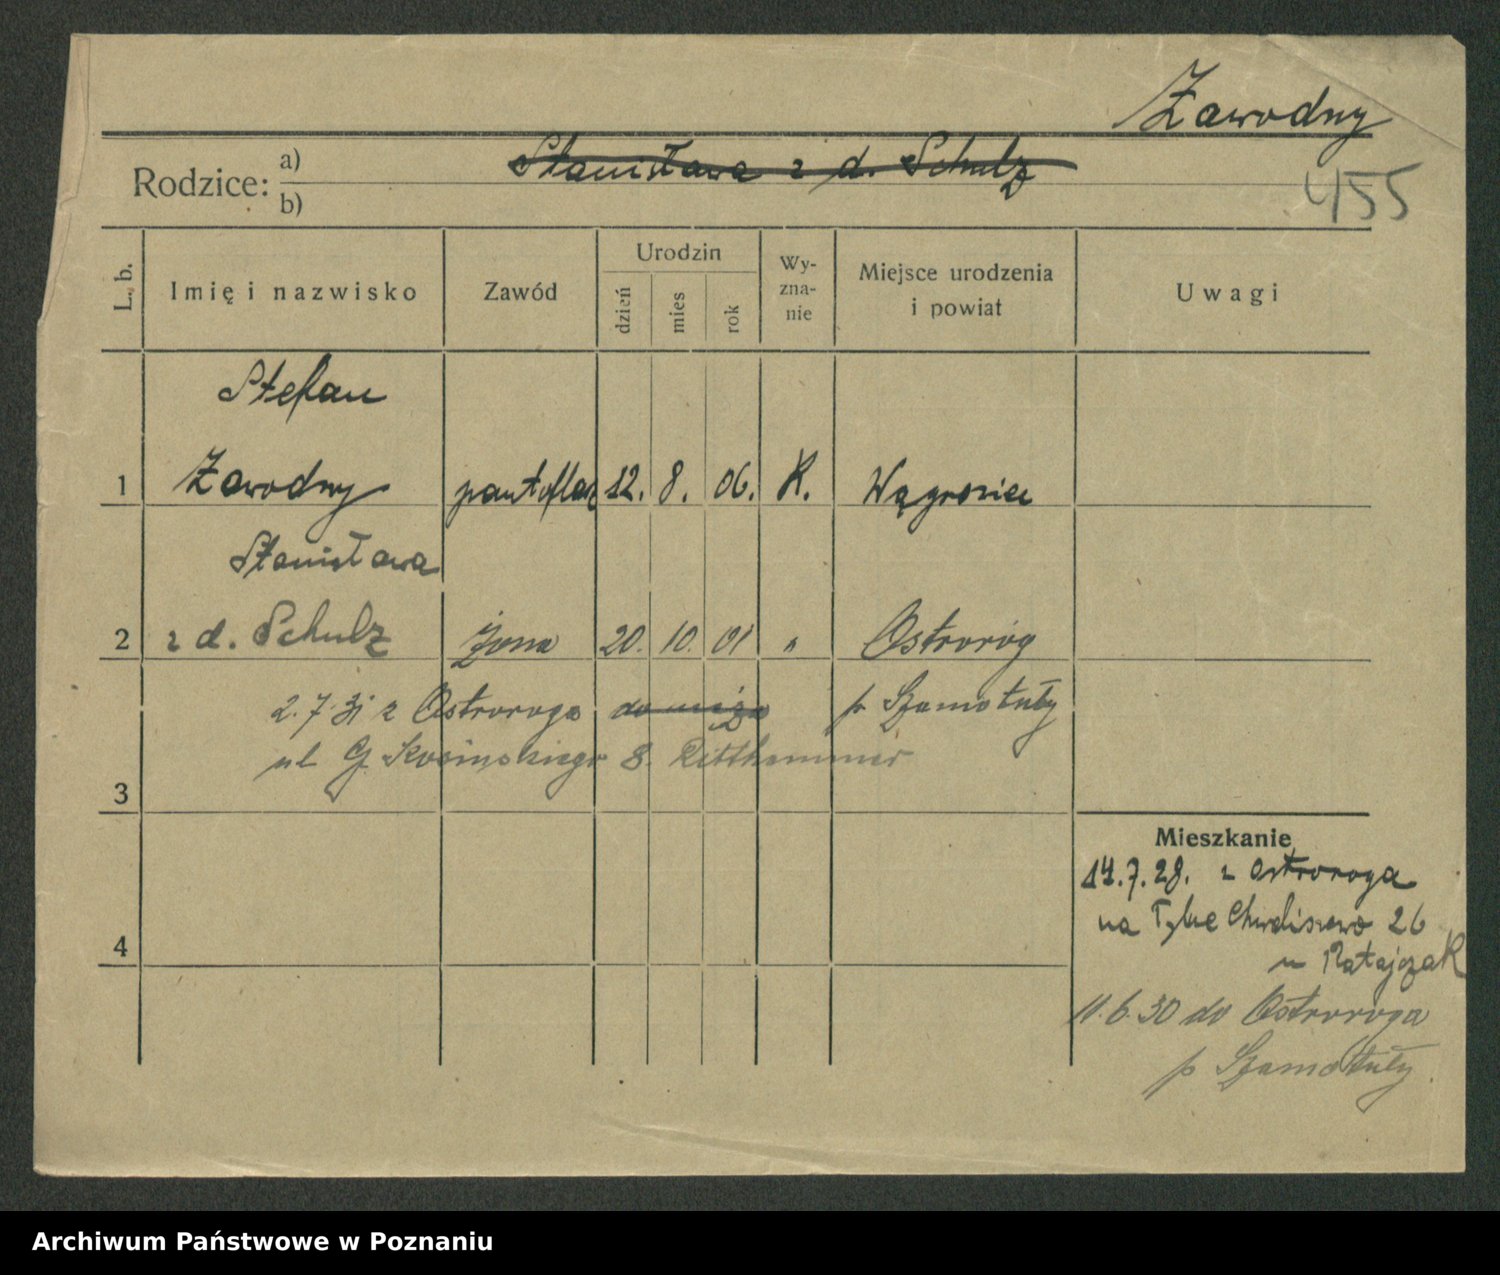 Zawodny
Rodzice: a) Stanisława z d. Schulz
b)
455
L. b. Imię i nazwisko Zawód Urodzin dzień mies rok Wyzna-nie Miejsce urodzenia i powiat Uwagi
Stefan
1 Zawodny pantoflarz 12. 8. 06. K.
Stanisława
2 z d. Schulz żona 20. 10. 01 " Ostroróg
2.7.31 z Ostroroga do męża p. Szamotuły
ul G Kosinskiego 8.
3
Mieszkanie
14.7.28. z Ostroroga
na 26
4
u Ratajczak
11.6.30 do Ostroroga
p. Szamotuły
Archiwum Państwowe w Poznaniu